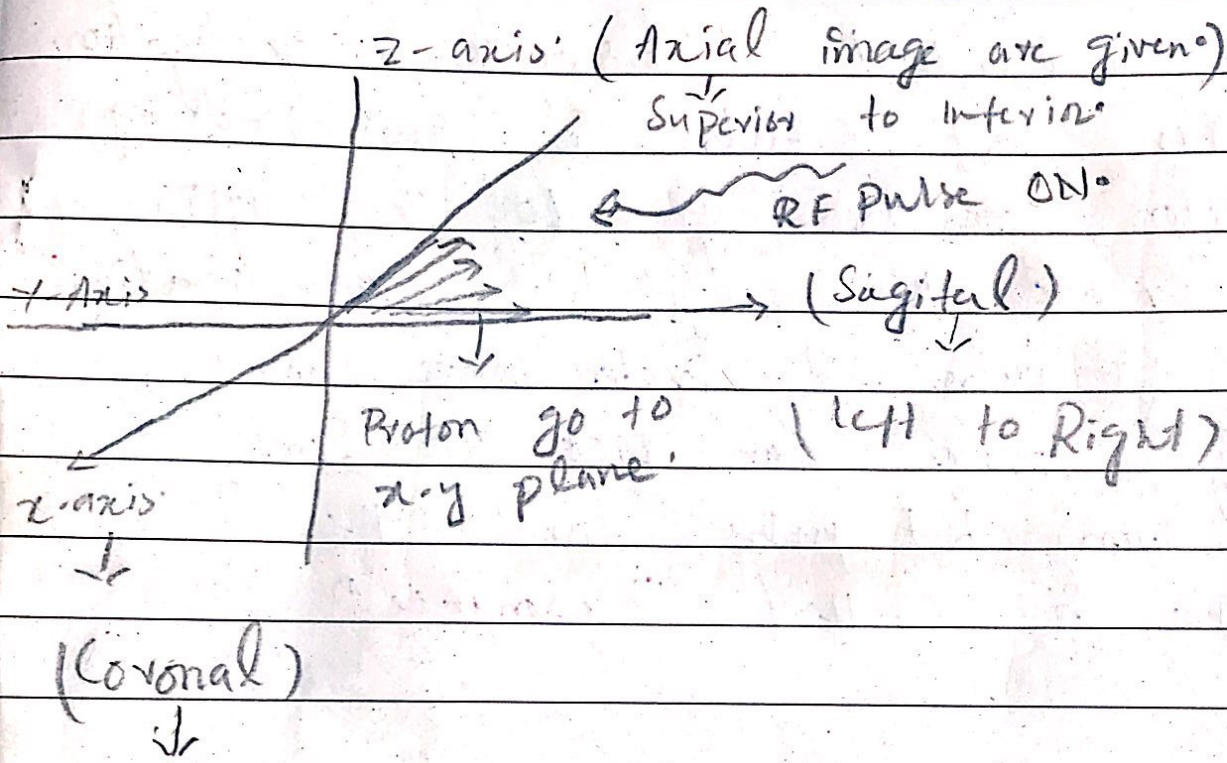 z-axis (Axial image are given.)
Superior to Inferior.
RF Pulse ON.
Y-Axis
(Sagital)
Proton go to
x-y plane
(left to Right)
x-axis
(Coronal)